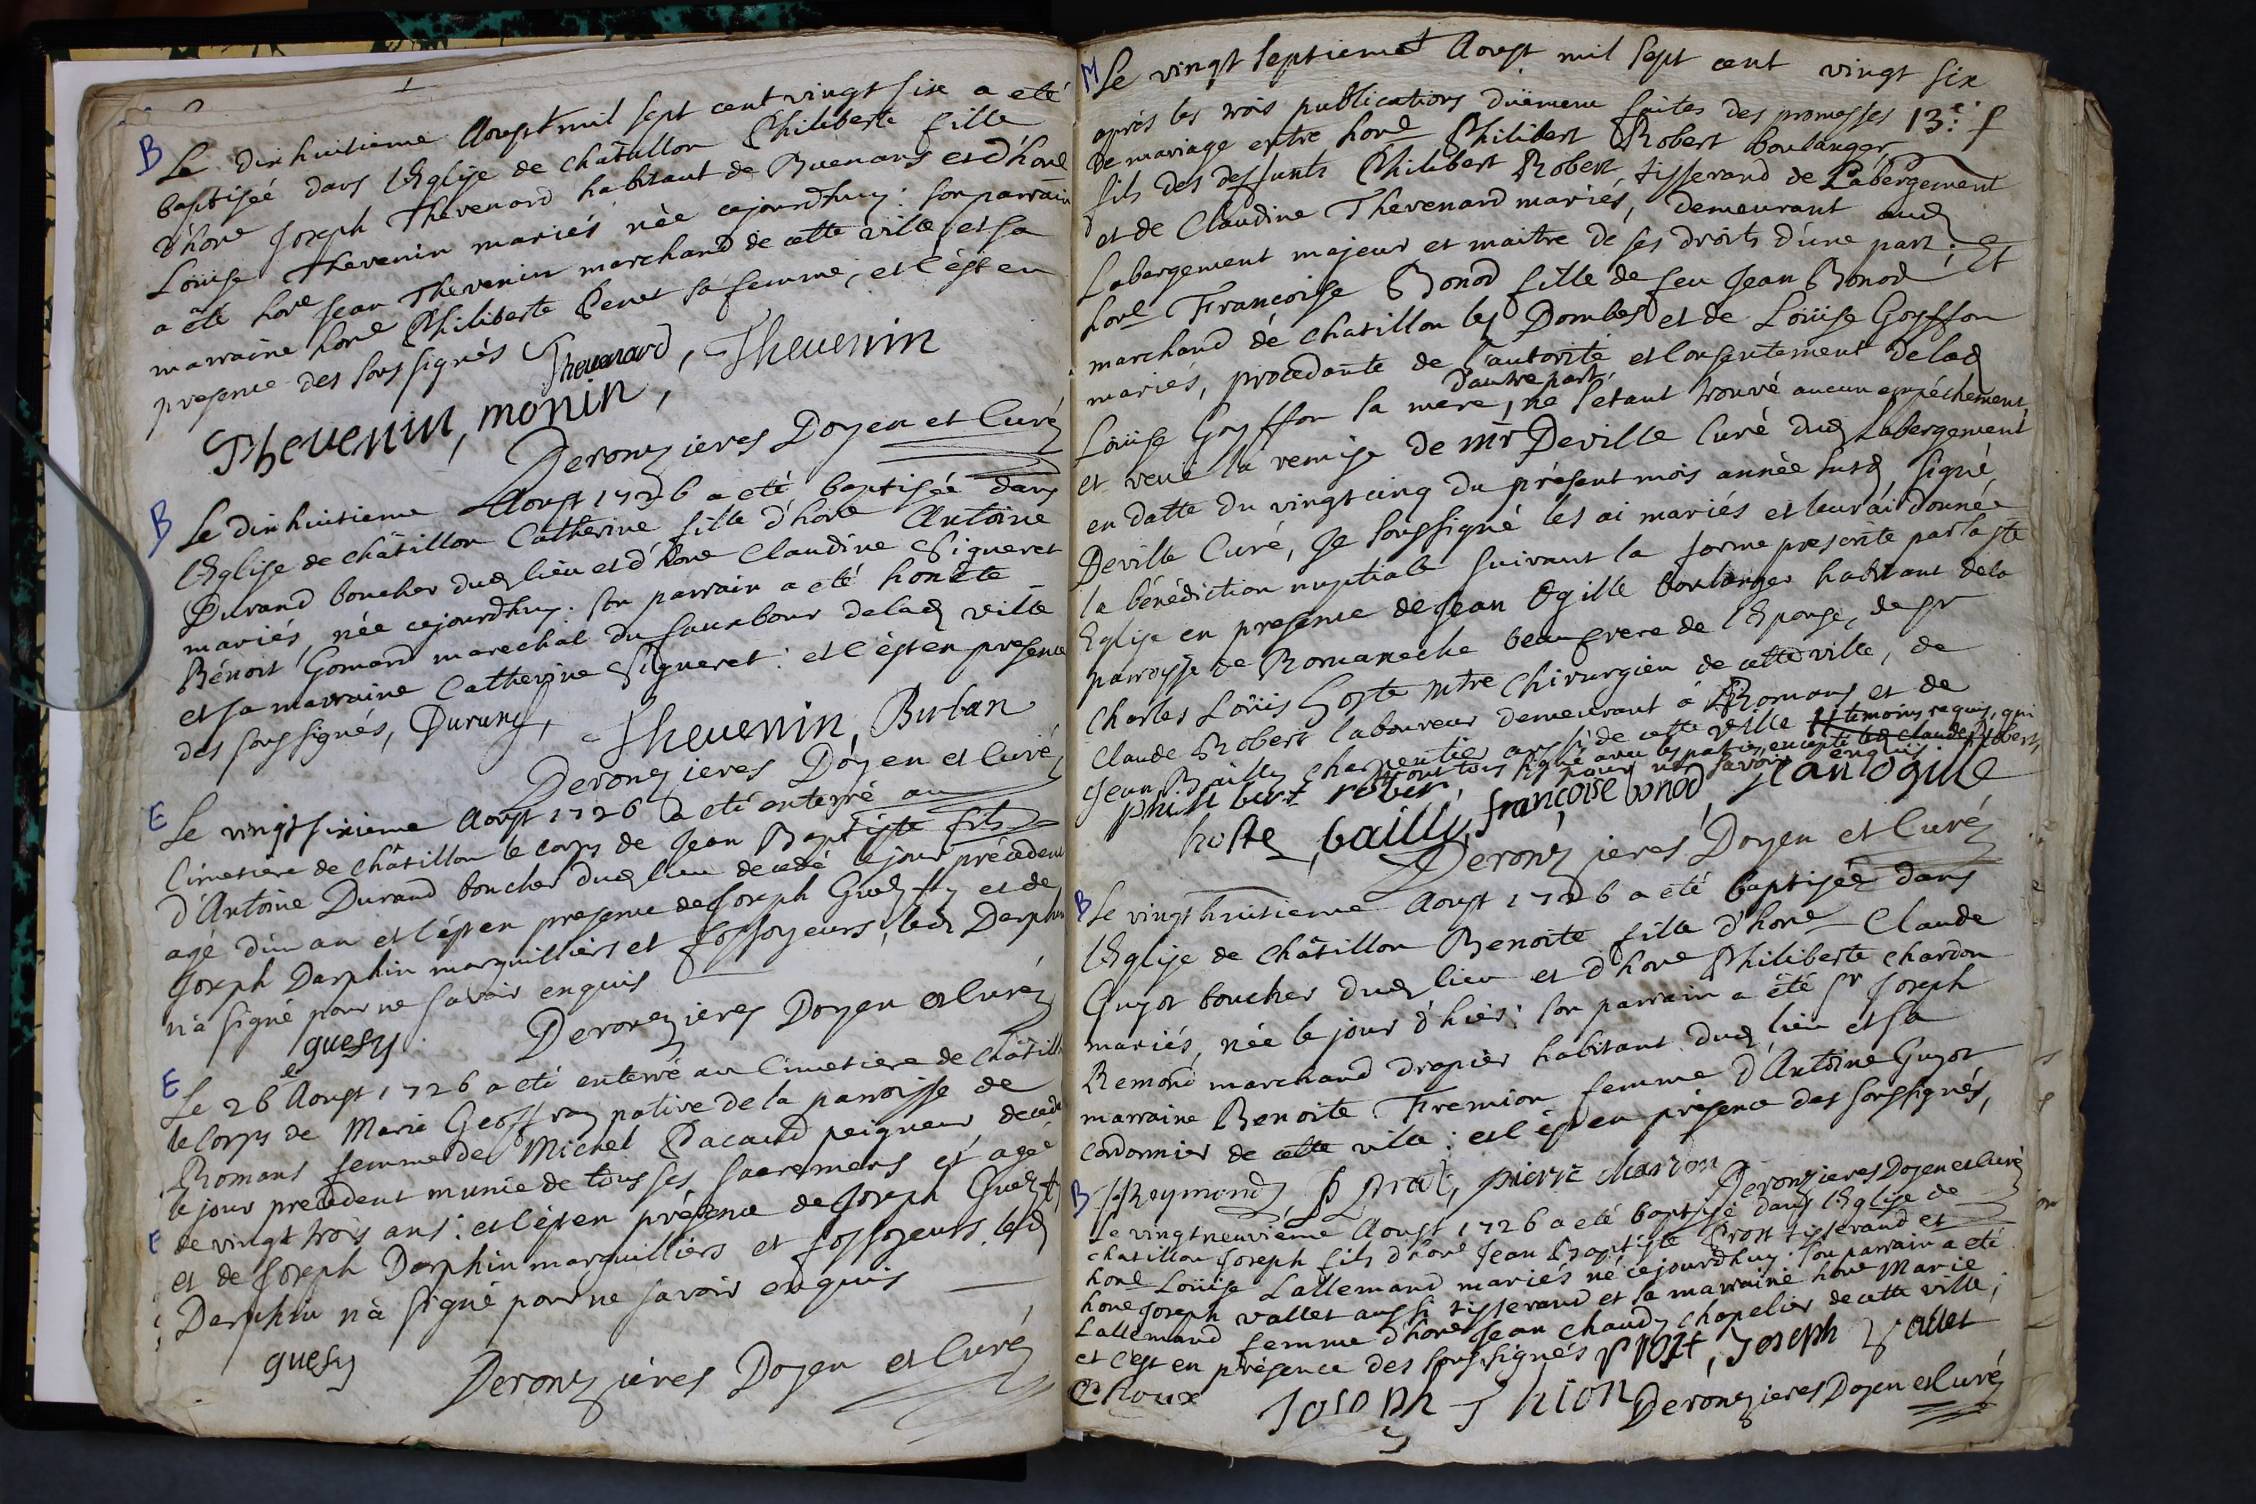 B Le dixhuitieme Aoust mil sept cent vingt six a eté
baptisée dans l'Eglise de châtillon Philiberte fille
d'hone Joseph Thevenard habitant de Buenans et d'hone
Loüise Thevenin mariés née cejourdhuy: son parrain
a été hone Jean Thevenin marchand de cette ville et sa
marraine hone Philiberte Penet sa femme, et c'est en
presence des soussignés Thevenard, Thevenin
Thevenin, monin,
Deronzieres Doyen et Curé
B Le dixhuitieme Aoust 1726 a eté baptisée dans
l'Eglise de châtillon Catherine fille d'hone Antoine
Durand boucher dud lieu et d'hone Claudine Sigueret
mariés, née cejourdhuy. son parrain a eté honete
Bénoit Gomard marechal du fauxbour delad ville
et sa marraine Catherine Sigueret: et c'est en presence
des soussignés, Durand, Thevenin, Burban
Deronzieres Doyen et Curé
E Le vingt sixieme Aoust 1726 a eté enterré au
Cimetiere de châtillon le corps de Jean Baptiste fils
d'Antoine Durand boucher dud lieu decedé le jour précedent
agé d'un an et c'est en presence de Joseph Guesy et de
Joseph Darphin marguilliers et fossoyeurs, led Darphin
n'a signé pour ne savoir enquis
guesy. Deronzieres Doyen et Curé
E Le 26e Aoust 1726 a eté enterré au Cimetiere de Châtill
le corps de Marie Geoffray native de la parroisse de
Romans femme de Michel Pacaud peigneur, decedé
le jour precedent munie de tous ses sacremens et agée
E de vingt trois ans: et c'est en présence de Joseph Guesy
et de Joseph Darphin marguilliers et fossoyeurs, led
Darphin n'a signé pour ne savoir enquis
guesy Deronzieres Doyen et Curé
M Le vingt septieme Aoust mil sept cent vingt six
après les trois publications düement faites des promesses 13e. f
de mariage entre hone Philibert Robert boulanger
fils des deffunts Philibert Robert tisserand de Labergement
et de Claudine Thevenard mariés, demeurant aud
Labergement majeur et maitre de ses droits d'une part; Et
hone Françoise Bonod fille de feu Jean Bonod
marchand de chatillon les Dombes et de Loüise Goyffon
mariés, procedante de l'autorité et consentement delad
Loüise Goyffon sa mere, dautre part, ne setant trouvé aucun empéchement,
et veuë la remise de mr Deville Curé dud Labergement
en datte du vingt cinq du présent mois année susd signé
Deville Curé, Je soussigné les ai mariés et leur ai donnée
la bénédiction nuptiale suivant la forme prescrite par la ste
Eglise en presence de Jean Ogille boulanger habitant dela
parroisse de Romaneche beaufrere de l'Epouse, de sr
Charles Loüis Hoste mtre Chirurgien de cette ville, de
Claude Robert laboureur demeurant à Romans et de
Jean Bailly charpentier aussi de cette ville temoins requis, qui
ont tous signé avec les parties, excepté led Claude Robert,
pour ne savoir enquis.
philibert rober, françoise bonod, jean ogille
hoste, bailly,
Deronzieres Doyen et Curé
B Le vingt huitieme Aoust 1726 a eté baptisée dans
l'Eglise de châtillon Benoite fille d'hone Claude
Guyot boucher dud lieu et d'hone Philiberte chardon
mariés, née le jour d'hier: son parrain a été sr Joseph
Remond marchand drapier habitant dud lieu et sa
marraine Benoite Fremion femme d'Antoine Guyot
cordonnier de cette ville: et c'est en présence des soussignés,
J Reymond, pierre chardon Deronzieres Doyen et Curé
B Le vingt neuvieme Aoust 1726 a eté baptisé dans l'Eglise de
chatillon Joseph fils d'hone Jean Baptiste Prost tisserand et
hone Loüise Lallemand mariés né cejourdhuy. son parrain a eté
hone Joseph vallet aussi tisserand et sa marraine hone Marie
Lallemand femme d'hone Jean chaudy chapelier de cette ville;
et c'est en présence des soussignés prost, Joseph vallet
Choux Joseph Thion Deronzieres Doyen et Curé